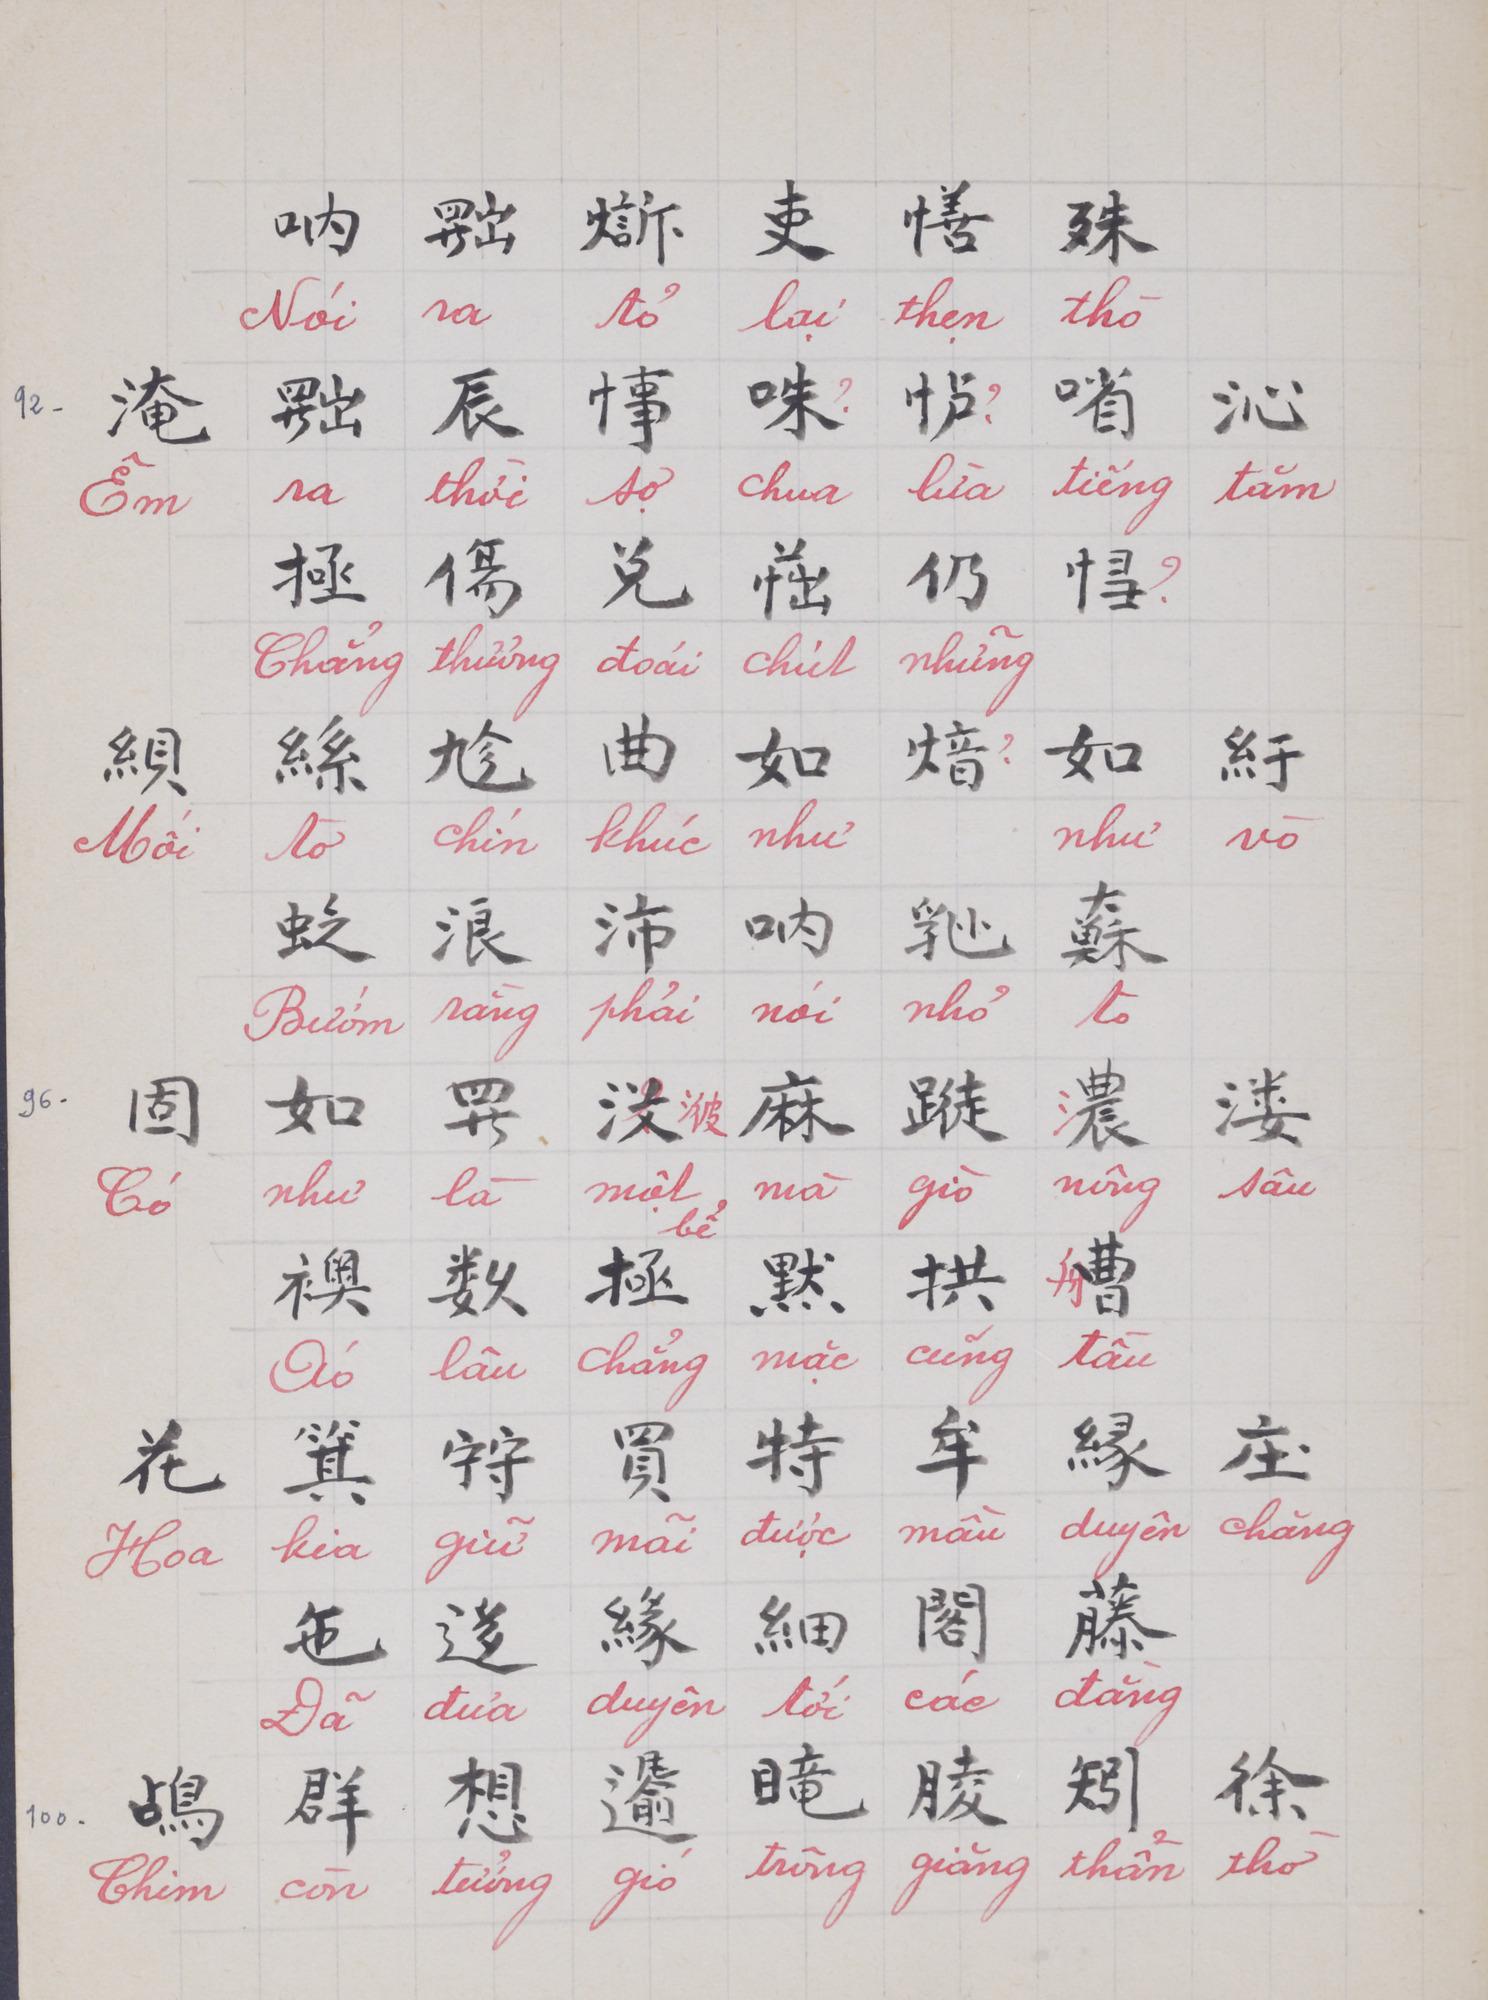 吶 𦋦 𤏣 吏 𢢆 殊
Nói ra tỏ lại thẹn thò
92- 淹 𦋦 辰 㦖 咮? 怷? 㗂 沁
Ễm ra thời sợ chua lừa tiếng tăm
極 傷 兑 仍 ?
Chẳng thương đoái chút những
絲 曲 如 焙? 如 紆
Mối tơ chín khúc như như vò
浪 沛 吶 蘇
Bướm rằng phải nói nhỏ to
96- 固 如 羅 没 麻 蹤 濃 溇
Có như là một mà giò nông sâu
bể
襖 数 極 默 拱 艚
Áo lâu chẳng mặc cũng tầu
花 箕 𡨹 買 特 牟 緣 庄
Hoa kia giữ mãi được mầu duyên chăng
㐌 迻 緣 細 閣 藤
Đã đưa duyên tới các đằng
100- 鴣 群 想 𨕭 𥊣 䏾 矧 徐
Chim còn tưởng gió trông giăng thẩn thơ